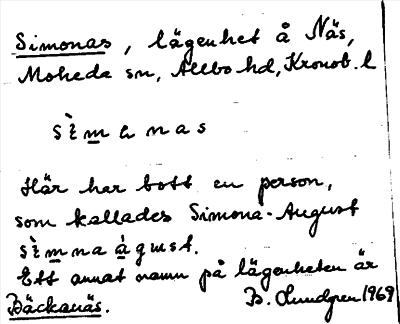 Simonas, lägenhet å Näs,
Moheda sn, Allbo hd, Kronob. l
sìmanas
Här har bott en person,
som kallades Simona-August
sìmna àgust.
Ett annat namn på lägenheten är
Bäckanäs. B. Lundgren 1969